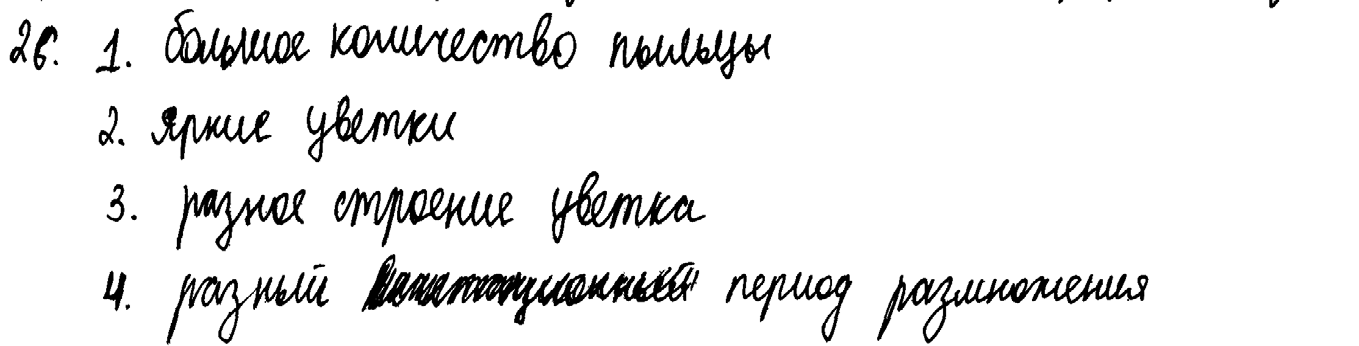 26. 1. большое количество пыльцы
2. яркие цветки
3. разное строение цветка
4. разный период размножения